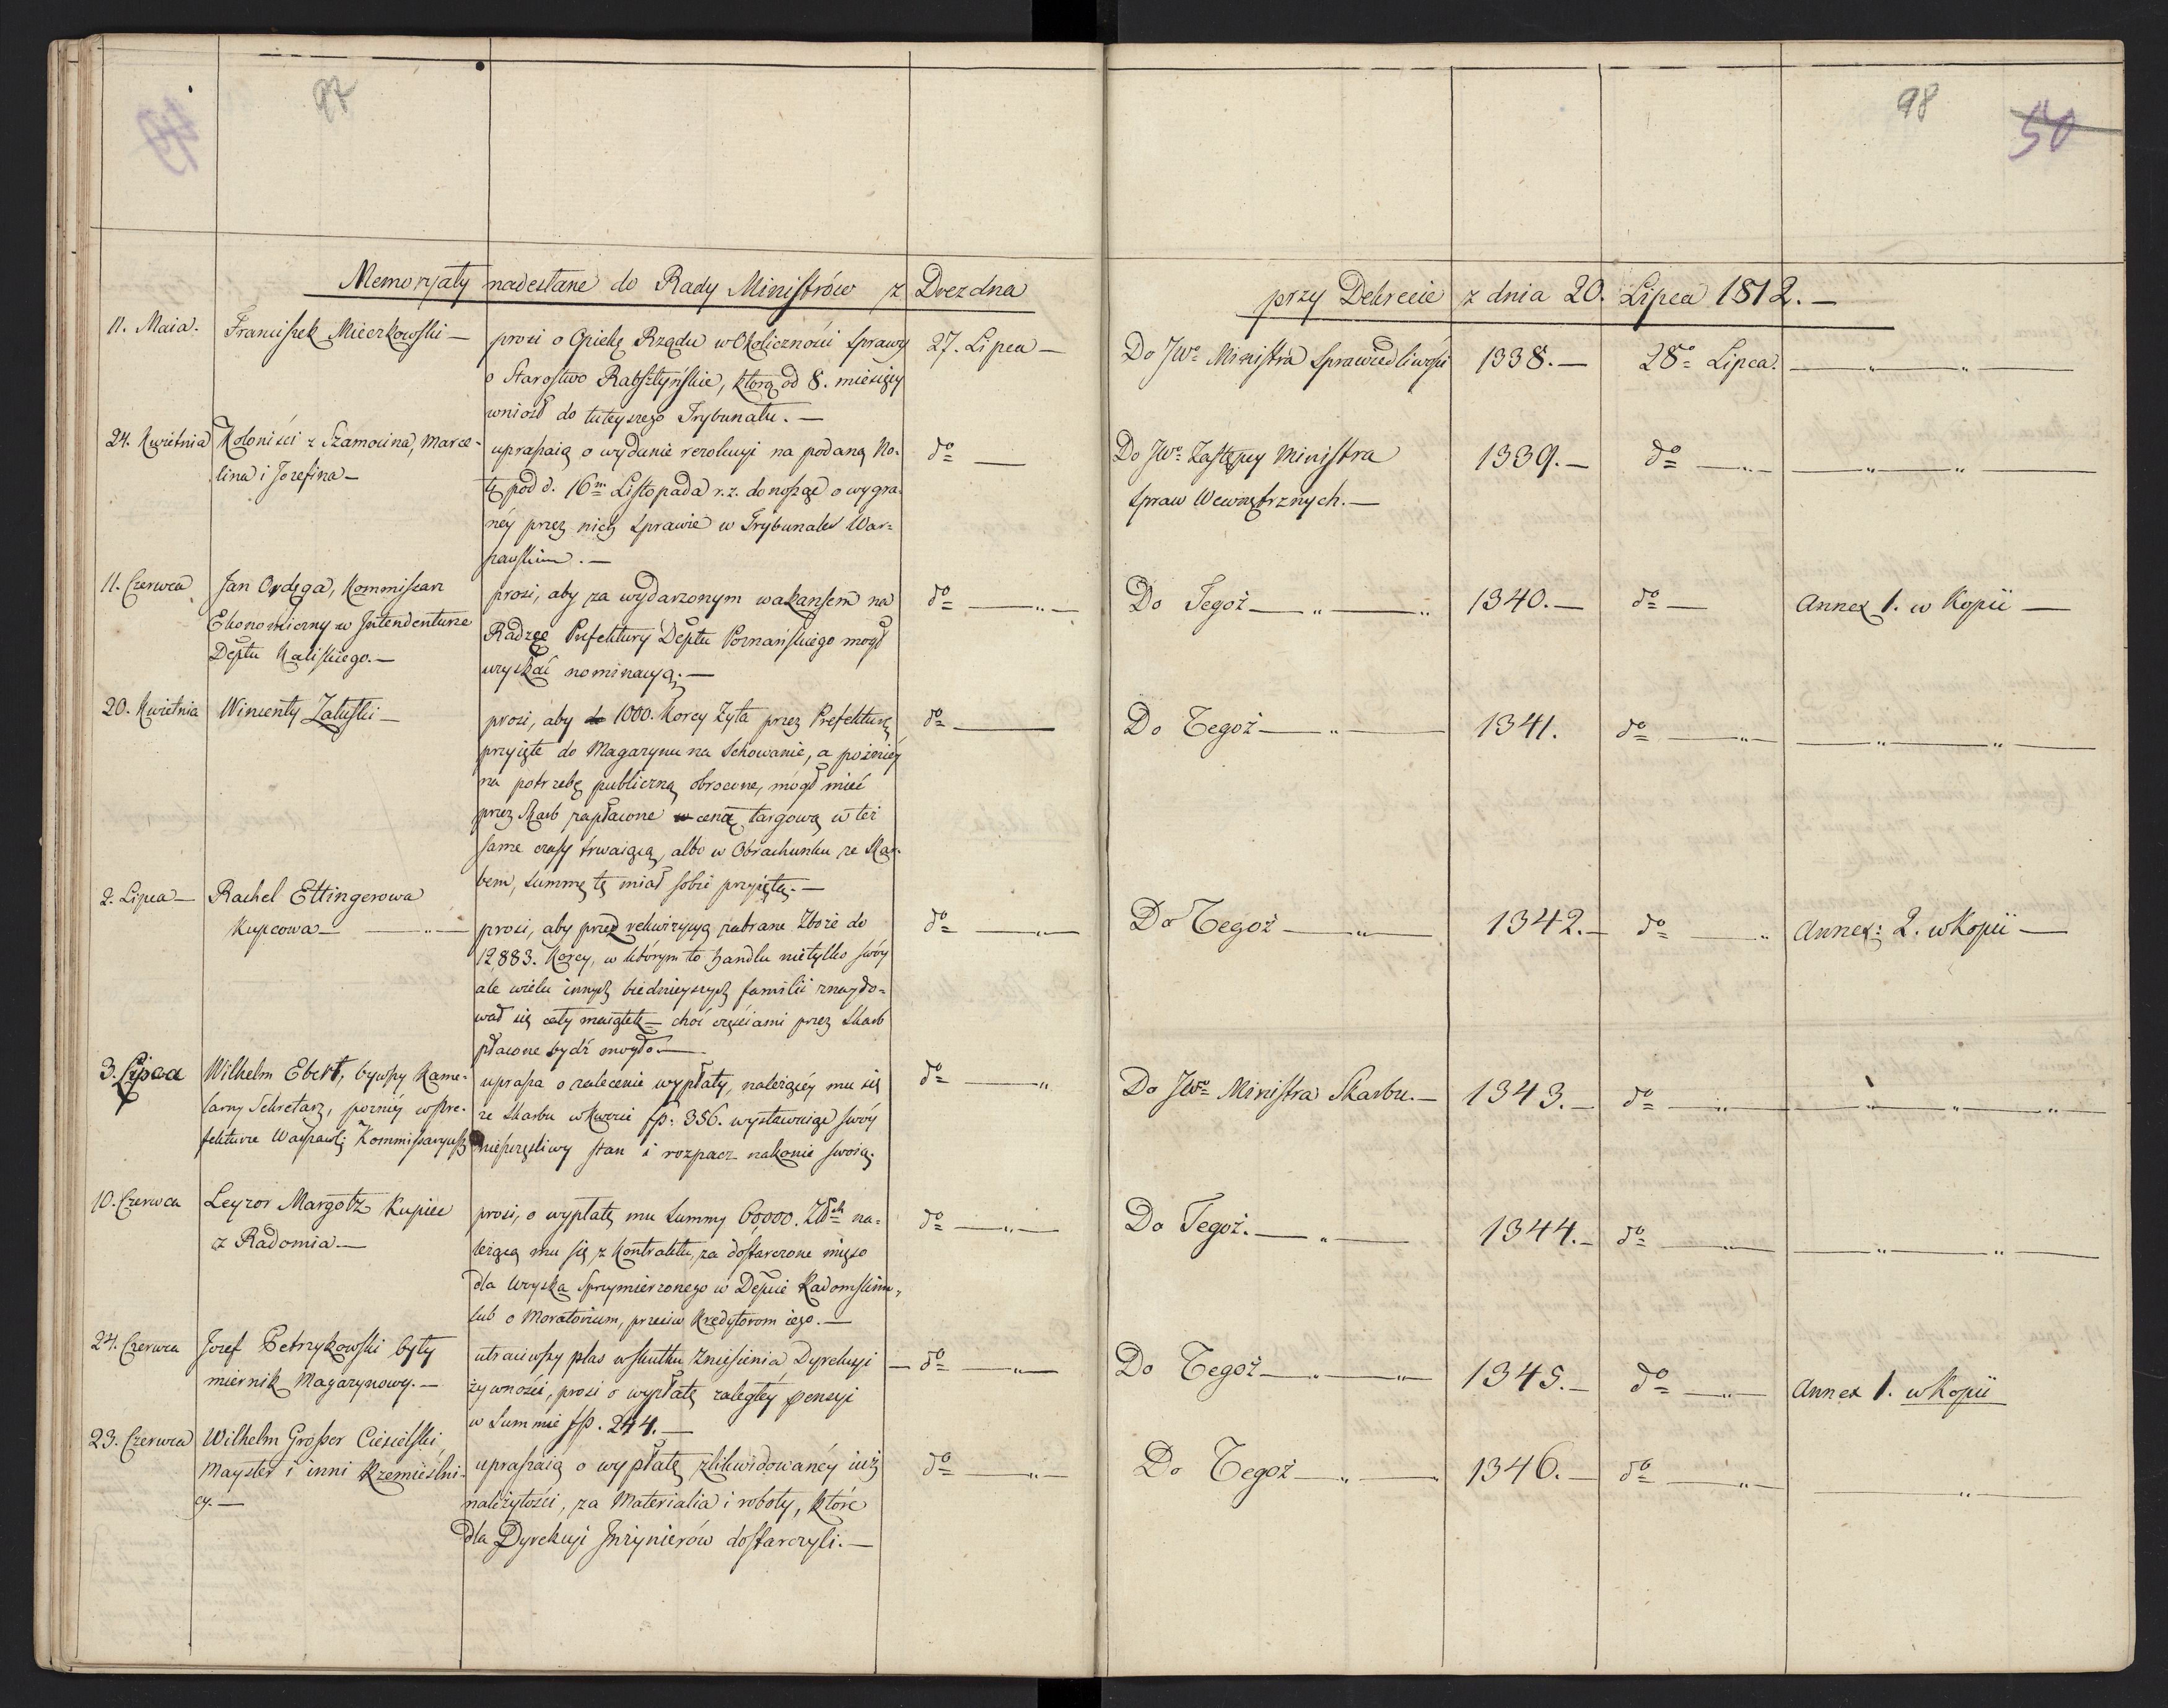 97
49
98
50
Memoryały nadesłane do Rady Ministrów z Drezdna przy Dekrecie z dnia 20. Lipca 1812. —
11. Maia.
Franciszek Mieczkowski —
prosi o Opiekę Rządu w Okoliczności sprawy
o Starostwo Rabsztyńskie, którą od 8. miesięcy
wniosł do tuteyszego Trybunału. —
27. Lipca —
Do JWo Ministra Sprawiedliwości
1338. —
28o Lipca.
24. Kwietnia
Koloniści z Szamocina, Marce-
lina i Jozefina —
upraszaią o wydanie rezolucyi na podaną No-
tę pod d. 16m Listopada r. z. donosząc o wygra-
néy przez nich sprawie w Trybunale War-
szawskim. —
do —
Do JWo Zastępcy Ministra
Spraw Wewnętrznych. —
1339. —
do —
11. Czerwca
Jan Ordęga, Kommissarz
Ekonomiczny w Intendenturze
Deptu Kaliskiego. —
prosi, aby za wydarzonym wakansem na
Radzcę Prefektury Deptu Poznańskiego mógł
uzyskać nominacyą. —
do —
Do Tegoż —
1340. —
do —
Annex 1. w Kopii —
20. Kwietnia
Wincenty Załuski —
prosi, aby 1000. Korcy Żyta przez Prefekturę
przyięte do Magazynu na Schowanie, a poźniéy
na potrzebę publiczną obrocone, mógł mieć
przez Skarb zapłacone cenę targową w też
same czasy trwaiącą, albo w Obrachunku ze Skar-
bem, Summę tę miał sobie przyiętą. —
do —
Do Tegoż —
1341.
do —
2. Lipca —
Rachel Ettingerowa
Kupcowa —
prosi, aby przez rekwizycyą zabrane Zboże do
12,883. Korcy, w którym to handlu nietylko swóy
ale wielu innych biednieyszych familii znaydo-
wał się cały maiątek — choć częściami przez Skarb
płacone bydź mogło. —
do —
Do Tegoż —
1342. —
do —
Annex: 2. w Kopii —
3. Lipca
Wilhelm Ebert, bywszy Kame-
larny Sekretarz, pozniéy w Pre-
fekturze Warszawsk: Kommissaryusz
uprasza o zalecenie wypłaty, należącéy mu się
ze Skarbu w kwocie fp: 356. wystawuiąc swóy
nieszczęśliwy stan i rozpacz nakonie swoią.
do —
Do JWo Ministra Skarbu. —
1343. —
do —
10. Czerwca
Leyzor Margotz Kupiec
z Radomia —
prosi, o wypłatę mu Summy 60000. Złch na-
leżącą mu się z Kontraktu, za dostarczone mięso
dla Woyska Sprzymierzonego w Depcie Radomskim,
lub o Moratorium, przeciw Kredytorom iego. —
do —
Do Tegoż. —
1344. —
do —
24. Czerwca
Jozef Petrzykowski były
miernik Magazynowy. —
utraciwszy plac w skutku Zniesienia Dyrekcyi
żywności, prosi o wypłatę zaległéy pensyi
w Summie fp. 244. —
— do —
Do Tegoż —
1345. —
do —
Annex 1. w Kopii
23. Czerwca
Wilhelm Grosser Ciesielski
Mayster i inni Rzemieślni-
cy. —
upraszaią o wypłatę zlikwidowanéy iuż
należytości, za Materialia i roboty, które
dla Dyrekcyi Inżynierów dostarczyli. —
do —
Do Tegoż —
1346. —
do —